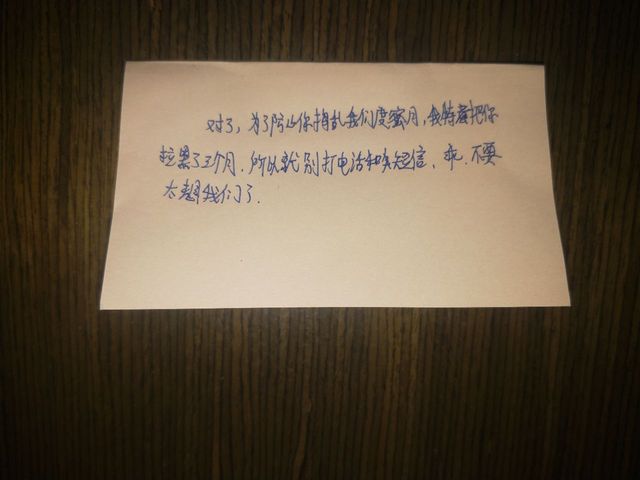 对了，为了防止你捣乱我们度蜜月，我特意把你
拉黑了三个月．所以就别打电话和发短信，乖．不要
太想我们了．